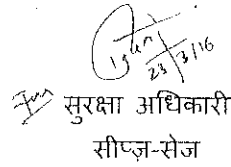 23/3/16
सुरक्षा अधिकारी
सीप्ज़-सेज